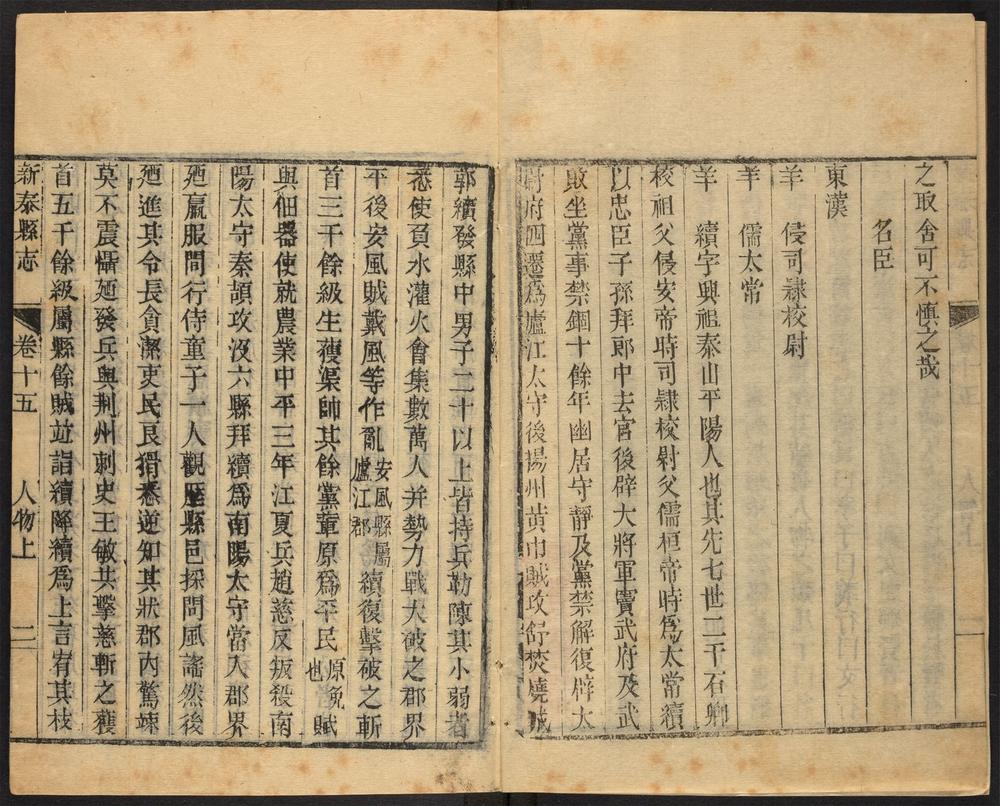 之取舍可不慎之哉
名臣
東漢
羊 侵司隸校尉
羊 儒太常
羊 續字興祖泰山平陽人也其先七世二千石卿
校祖父侵安帝時司隸校尉父儒桓帝時爲太常續
以忠臣子孫拜郎中去官後辟大將軍竇武府及武
敗坐黨事禁錮十餘年幽居守靜及黨禁解復辟太
尉府四遷爲廬江太守後揚州黃巾賊攻舒焚燒城
郭續發縣中男子二十以上皆持兵勒陳其小弱者
悉使負水灌火會集數萬人并勢力戰大破之郡界
平後安風賊戴風等作亂安風縣屬廬江郡續復擊破之斬
首三千餘級生獲渠帥其餘黨輩原爲平民原免也賦
與佃器使就農業中平三年江夏兵趙慈反叛殺南
陽太守秦頡攻沒六縣拜續爲南陽太守當入郡界
廼羸服間行侍童子一人觀歷縣邑採問風謠然後
廼進其令長貪潔吏民良猾悉逆知其狀郡內驚竦
莫不震懾廼發兵與荆州刺史王敏共擊慈斬之獲
首五千餘級屬縣餘賊竝詣續降續爲上言宥其枝
新泰縣志 卷十五 人物上 二